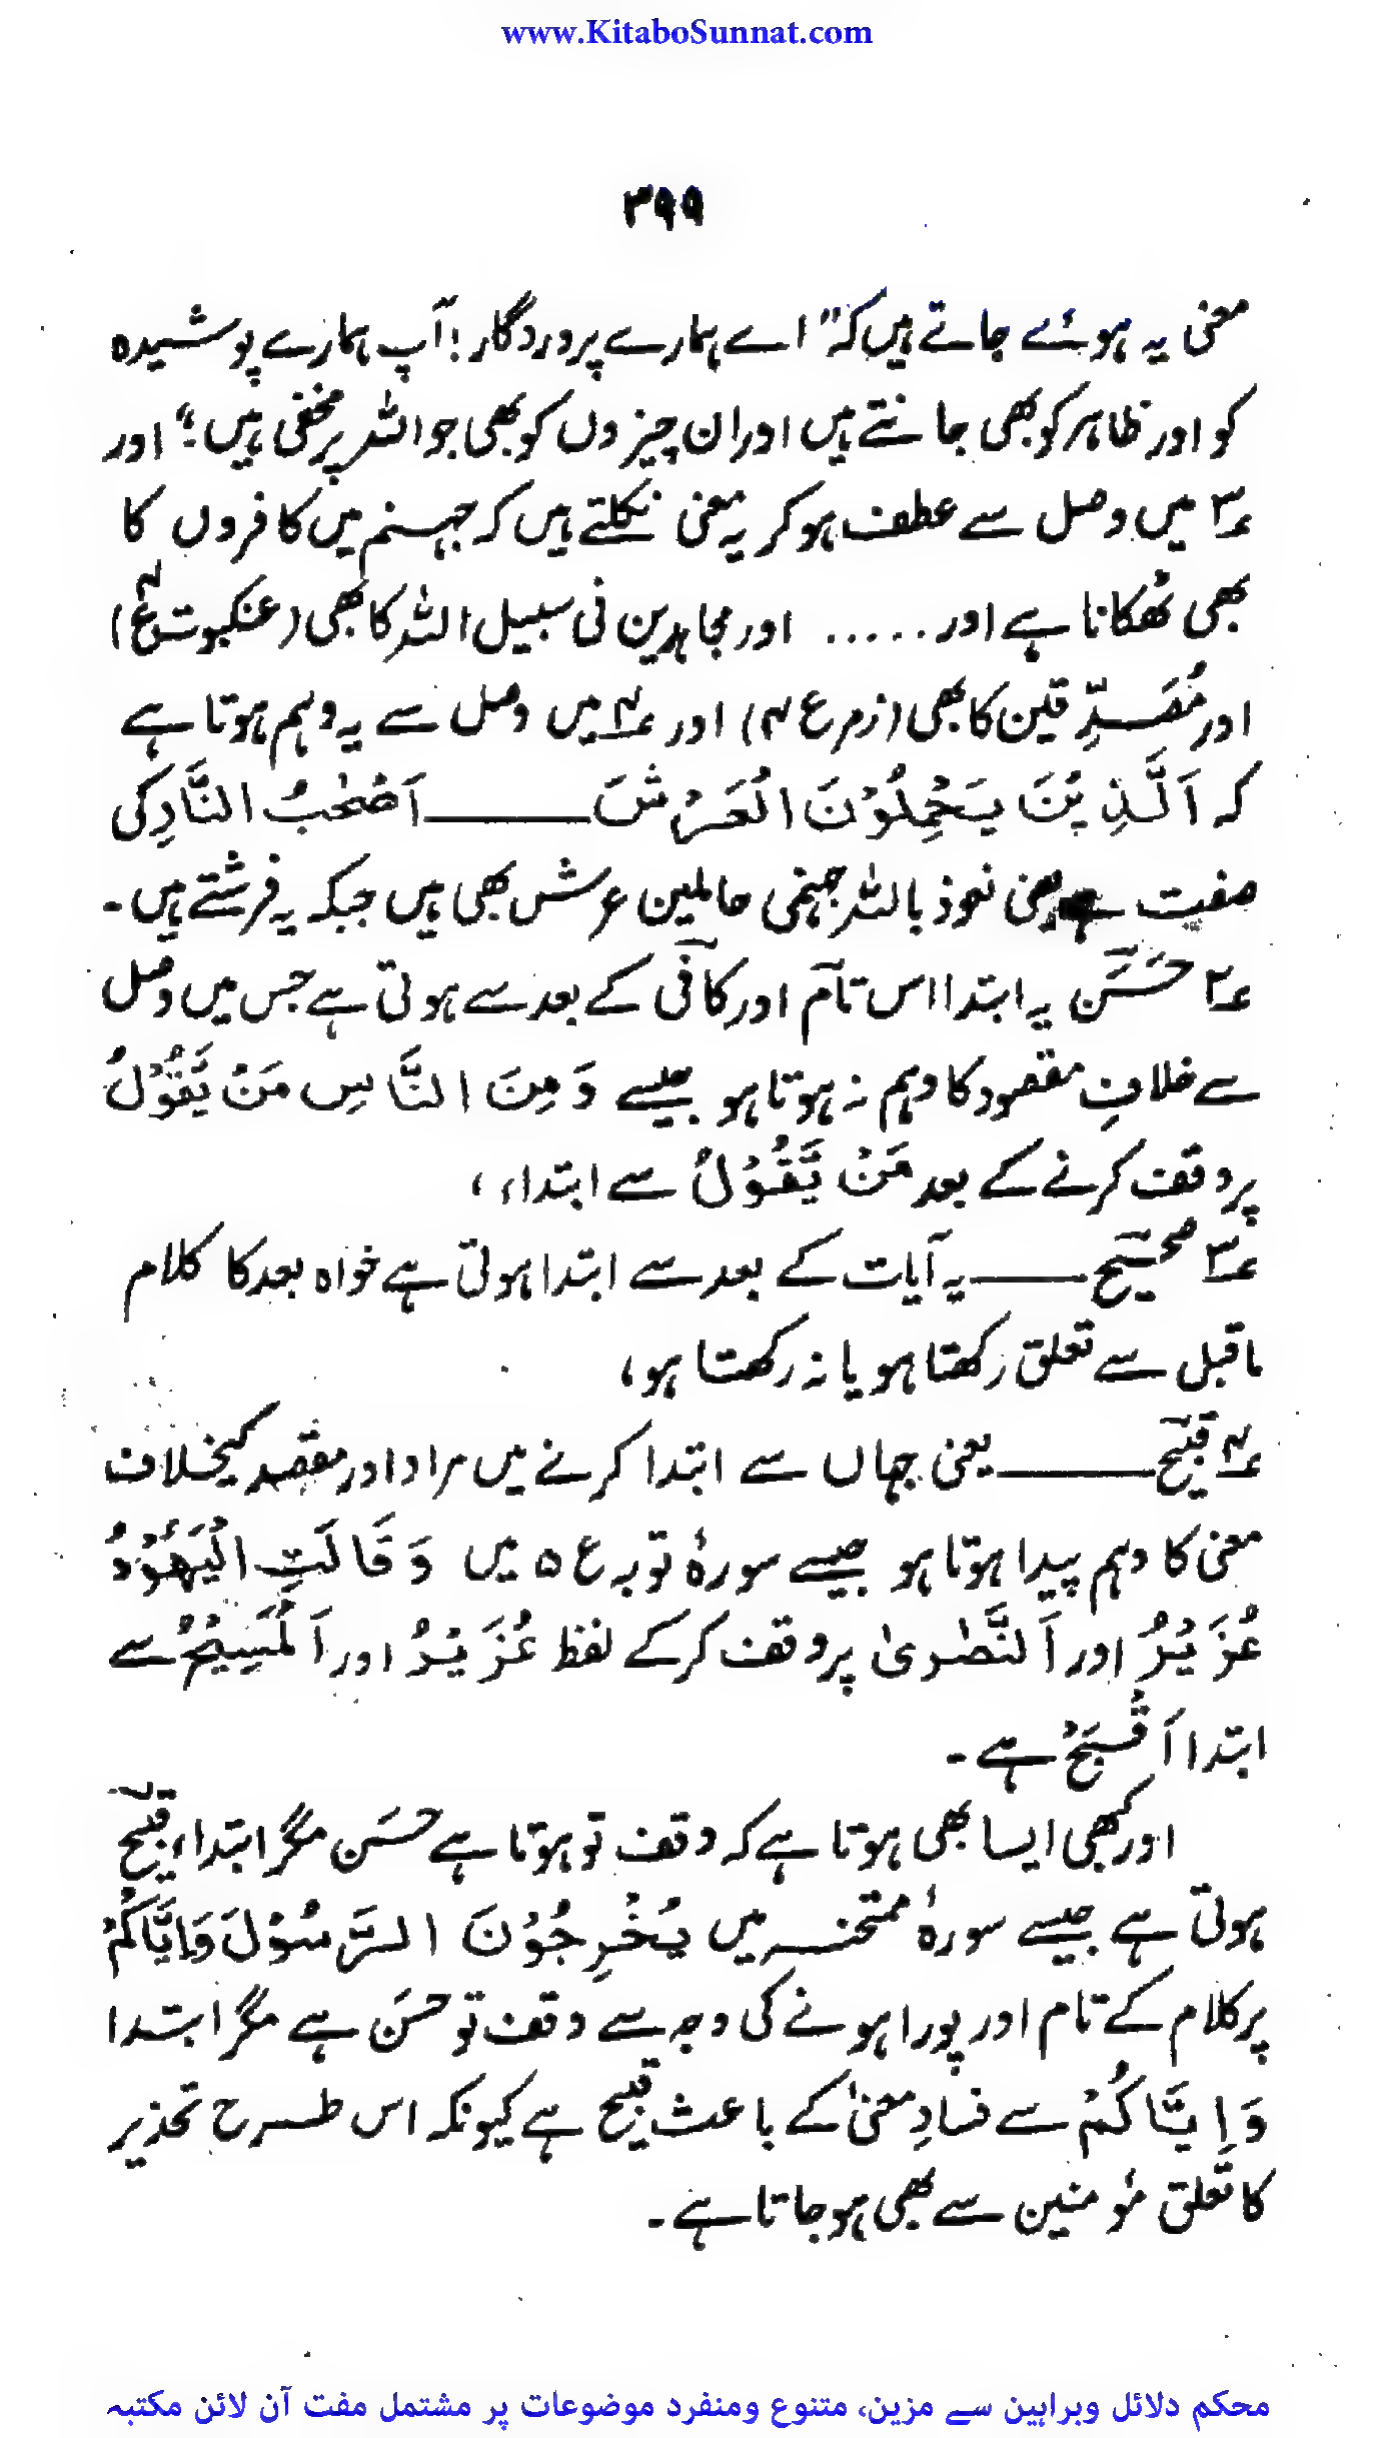 www.KitaboSunnat.com
۳۹۹
معنی یہ ہوئے جاتے ہیں کہ "اے ہمارے پروردگار! آپ ہمارے پوشیدہ
کو اور ظاہر کو بھی جانتے ہیں اور ان چیزوں کو بھی جو اللہ پر مخفی ہیں؛" اور
۳؎ میں وصل سے عطف ہو کر یہ معنی نکلتے ہیں کہ جہنم میں کافروں کا
بھی ٹھکانا ہے اور ..... اور مجاہدین فی سبیل اللہ کا بھی (عنکبوت ع ۷)
اور مُصَدِّقین کا بھی (زمر ع ۴) اور ۴؎ میں وصل سے یہ وہم ہوتا ہے
کہ اَلَّذِیْنَ یَحْمِلُوْنَ الْعَرْشَ ـــــــ اَصْحٰبُ النَّارِ کی
صفت ہے یعنی نعوذ باللہ جہنمی حاملین عرش بھی ہیں جبکہ یہ فرشتے ہیں۔
۲؎ حَسَن یہ ابتدا اس تآم اور کافی کے بعد سے ہوتی ہے جس میں وصل
سے خلافِ مقصود کا وہم نہ ہوتا ہو جیسے وَمِنَ النَّاسِ مَنْ یَّقُوْلُ
پر وقف کرنے کے بعد مَنْ یَّقُوْلُ سے ابتداء،
۳؎ صحیح ـــــــ یہ آیات کے بعد سے ابتدا ہوتی ہے خواہ بعد کا کلام
ماقبل سے تعلق رکھتا ہو یا نہ رکھتا ہو،
۴؎ قبیح ـــــــ یعنی جہاں سے ابتدا کرنے میں مراد اور مقصد کیخلاف
معنی کا وہم پیدا ہوتا ہو جیسے سورۂ توبہ ع ۵ میں وَقَالَتِ الْیَهُوْدُ
عُزَیْرُ اور اَلنَّصٰرىٰ پر وقف کرکے لفظ عُزَیْرُ اور اَلْمَسِیْحُ سے
ابتدا اَقْبَحْ ہے۔
اور کبھی ایسا بھی ہوتا ہے کہ وقف تو ہوتا ہے حسَن مگر ابتداء قبیح
ہوتی ہے جیسے سورۂ ممتحنہ میں یُخْرِجُوْنَ الرَّسُوْلَ وَاِیَّاکُمْ
پر کلام کے تام اور پورا ہونے کی وجہ سے وقف تو حسَن ہے مگر ابتدا
وَاِیَّاکُمْ سے فسادِ معنیٰ کے باعث قبیح ہے کیونکہ اس طرح تحذیر
کا تعلق مؤمنین سے بھی ہو جاتا ہے۔
محکم دلائل وبراہین سے مزین، متنوع ومنفرد موضوعات پر مشتمل مفت آن لائن مکتبہ